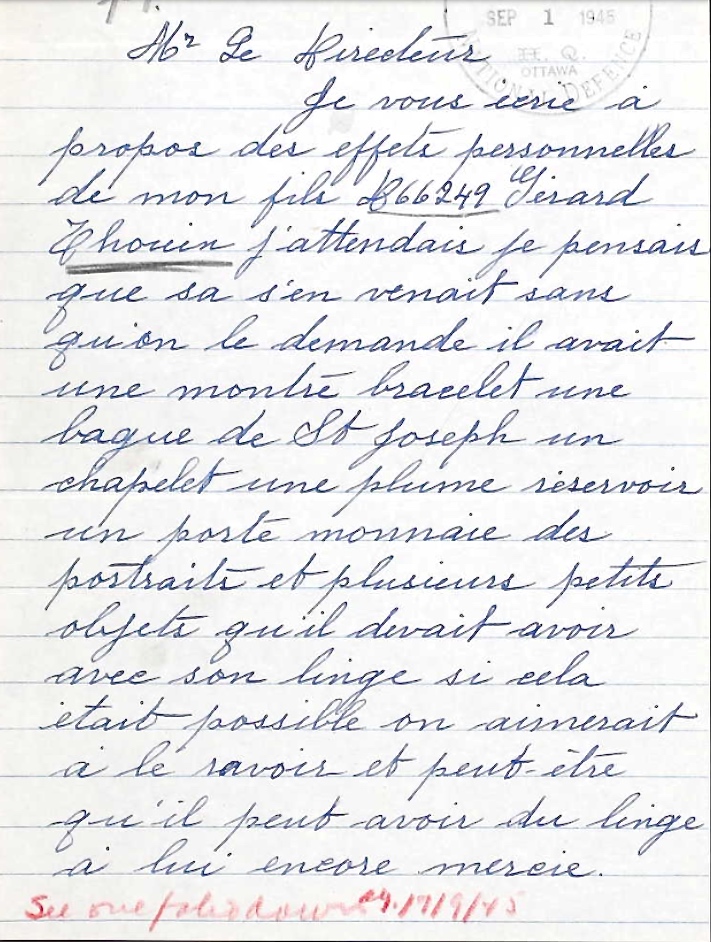 SEP 1 1945
H. Q.
OTTAWA
NATIONAL DEFENCE
Mr Le Directeur
Je vous ecrie à
propos des effets personnelles
de mon fils D66249 Gérard
Thouin j'attendais je pensais
que sa s'en venait sans
qu'on le demande il avait
une montre bracelet une
bague de St Joseph un
chapelet une plume réservoir
un porte monnaie des
portraits et plusieurs petits
objets qu'il devait avoir
avec son linge si cela
était possible on aimerait
à le ravoir et peut-être
qu'il peut avoir du linge
à lui encore mercie.
See one folio down 17/9/45